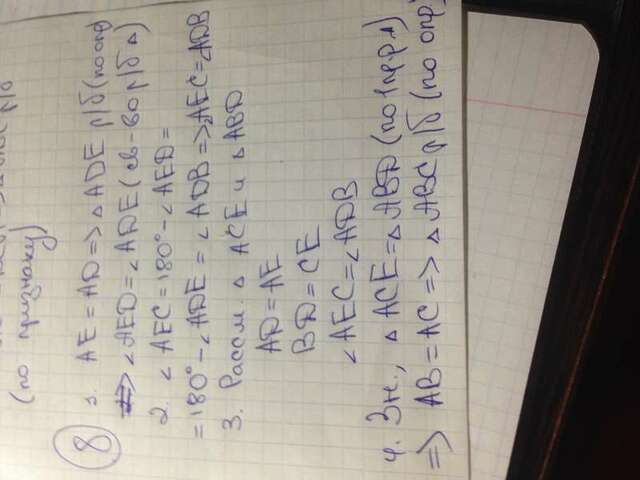 (по признаку)
8
1. AE = AD => △ADE р/б (по опр
=> ∠AED = ∠ADE (св-во р/б △)
2. ∠AEC = 180° - ∠AED =
= 180° - ∠ADE = ∠ADB => ∠AEC = ∠ADB
3. Рассм. △ ACE и △ ABD
AD = AE
BD = CE
∠AEC = ∠ADB
4. Зн., △ ACE = △ABD (по 1 пр р △)
=> AB = AC => △ABC р/б (по опр)